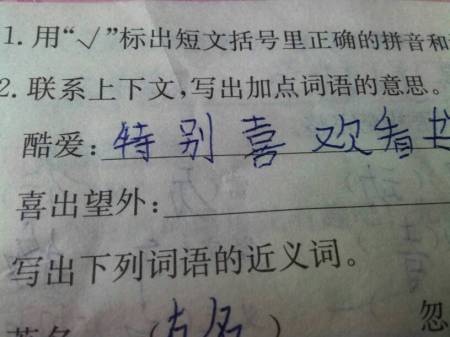 1. 用“√”标出短文括号里正确的拼音和
2. 联系上下文,写出加点词语的意思。
酷爱:特别喜欢看书
喜出望外:
写出下列词语的近义词。
英名 (有名) 忽